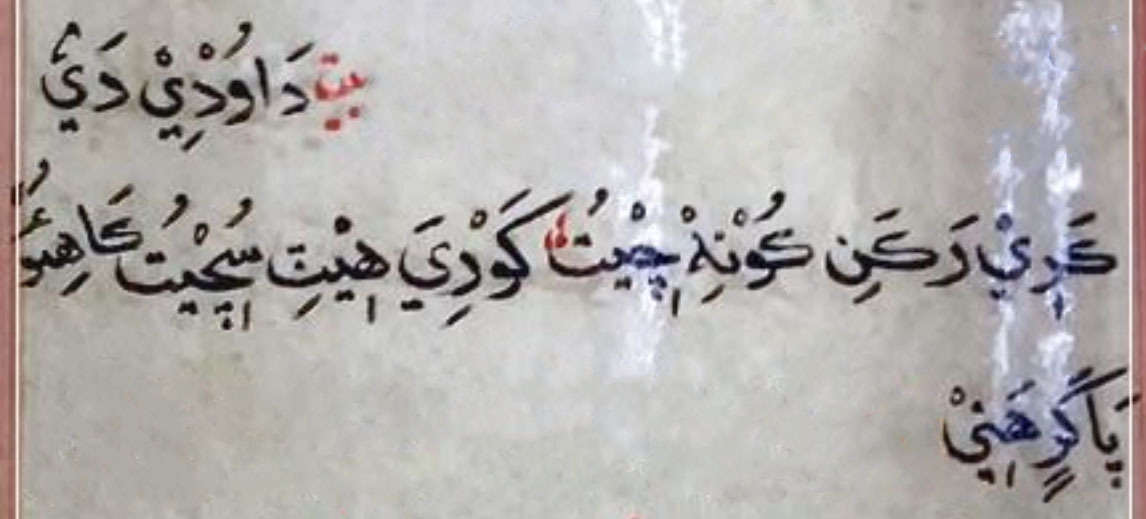 بيت دَاوُدِيْ دَيْ
كَرِيْ رَكَنِ كُوْنِهْ چِيْتُ، كَوْرِيَ هِيْتِ سُچِيْتُ كَاهِئُو
پَاكَرٍ هَنِيْ